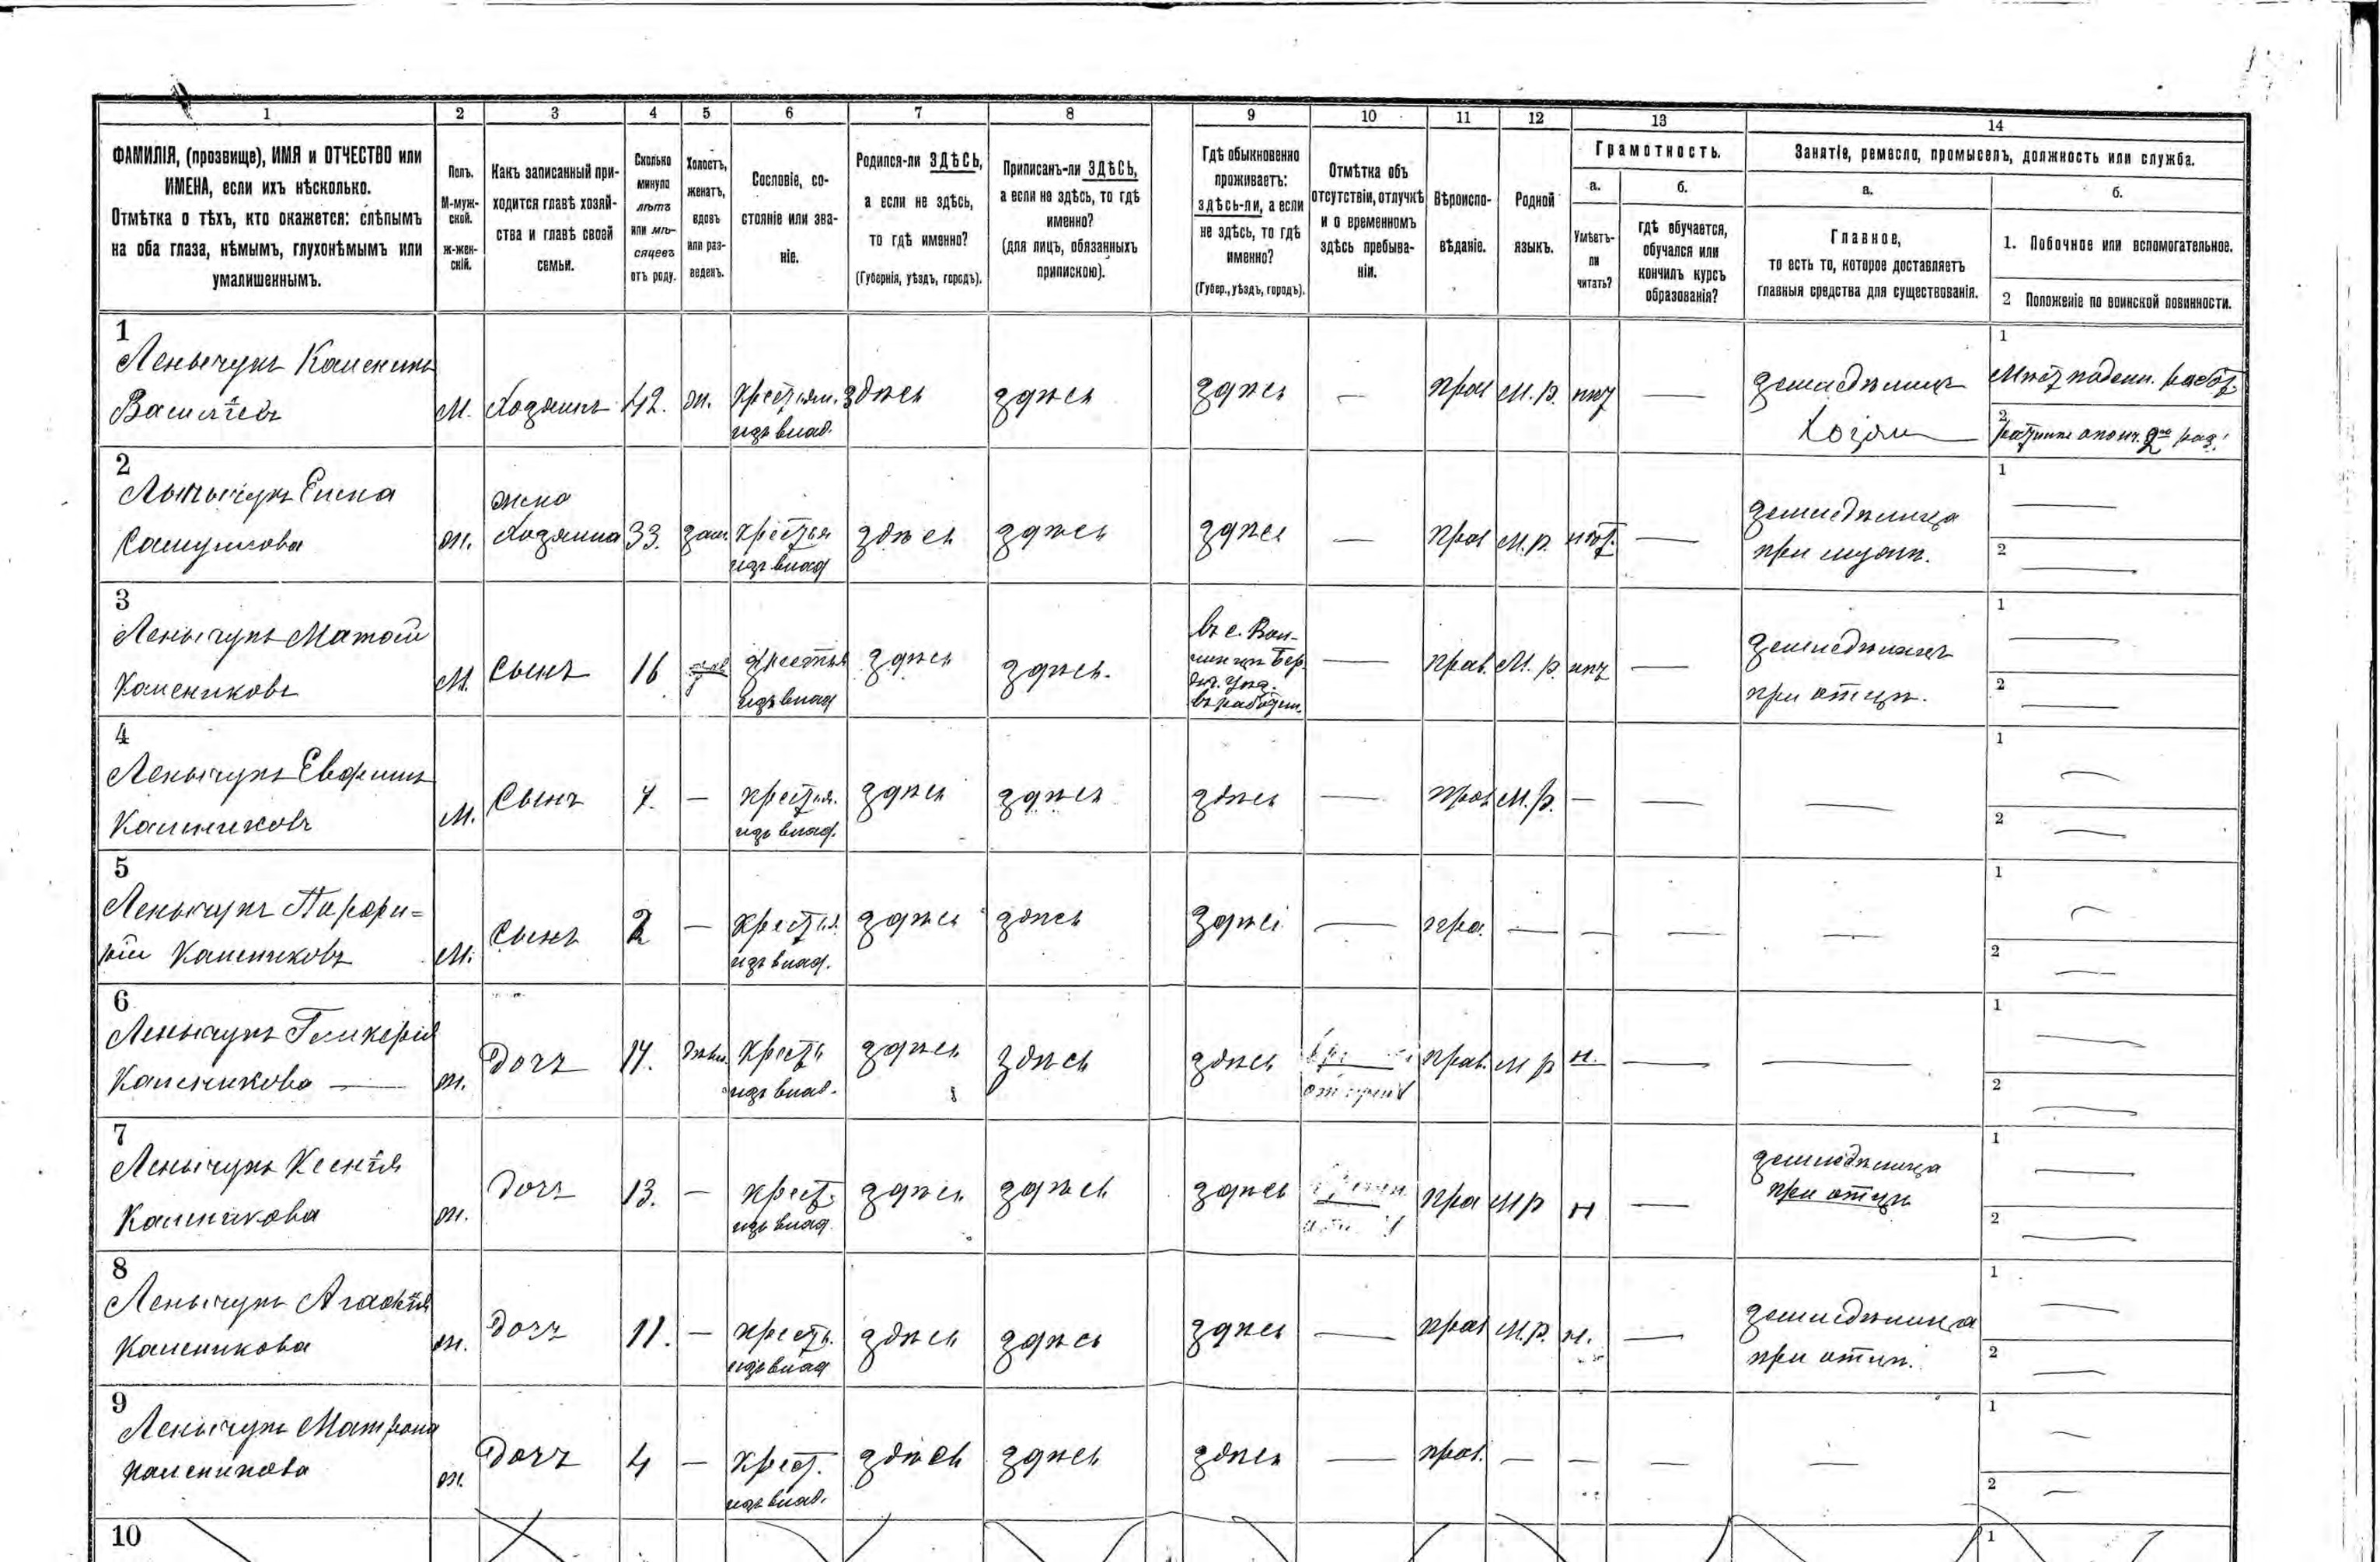 1 2 3 4 5 6 7 8 9 10 11 12 13 14
ФАМИЛІЯ, (прозвище), ИМЯ и ОТЧЕСТВО или
ИМЕНА, если ихъ нѣсколько.
Отмѣтка о тѣхъ, кто окажется: слѣпымъ
на оба глаза, нѣмымъ, глухонѣмымъ или
умалишеннымъ.
Полъ.
М-муж-
ской.
ж-жен-
скій.
Какъ записанный при-
ходится главѣ хозяй-
ства и главѣ своей
семьи.
Сколько
минуло
лѣтъ
или мѣ-
сяцевъ
отъ роду.
Холостъ,
женатъ,
вдовъ
или раз-
веденъ.
Сословіе, со-
стояніе или зва-
ніе.
Родился-ли ЗДѢСЬ,
а если не здѣсь,
то гдѣ именно?
(Губернія, уѣздъ, городъ).
Приписанъ-ли ЗДѢСЬ,
а если не здѣсь, то гдѣ
именно?
(для лицъ, обязанныхъ
припискою).
Гдѣ обыкновенно
проживаетъ:
здѣсь-ли, а если
не здѣсь, то гдѣ
именно?
(Губер., уѣздъ, городъ).
Отмѣтка объ
отсутствіи, отлучкѣ
и о временномъ
здѣсь пребыва-
ніи.
Вѣроиспо-
вѣданіе.
Родной
языкъ.
Грамотность.
а.
Умѣетъ-
ли
читать?
б.
гдѣ обучается,
обучался или
кончилъ курсъ
образованія?
Занятіе, ремесло, промыселъ, должность или служба.
а.
Главное,
то есть то, которое доставляетъ
главныя средства для существованія.
б.
1. Побочное или вспомогательное.
2 Положеніе по воинской повинности.
1
Леньчукъ Каленикъ
Васильевъ
М. Хозяинъ 42. ж. крестьян. здѣсь здѣсь здѣсь — прав М. р. нѣт — земледѣлецъ
изъ влад. Хозяин
1
2
2
Леньчукъ Елена
Самуилова
ж. жена
Хозяина 33. зам. крестья здѣсь здѣсь здѣсь — прав М. р. нѣт. — земледѣлица
изъ влад при мужѣ.
1 —
2 —
3
Леньчукъ Матѳей
Калениковъ
М. Сынъ 16 крестья здѣсь здѣсь.
изъ влад
въ с.
— прав. М. р. нѣт — земледѣлецъ
при отцѣ.
1 —
2 —
4
Леньчукъ
Калениковъ
М. Сынъ 7. — крестья. здѣсь здѣсь здѣсь — прав М. р. — — —
изъ влад.
1 —
2 —
5
Леньчукъ Пирфи=
рій Калениковъ
М. Сынъ 2 — крестья. здѣсь здѣсь здѣсь — пра. — — — —
изъ влад.
1 —
2 —
6
Леньчукъ Гликерія
Каленикова —
ж. Дочъ 17. крестъ здѣсь здѣсь здѣсь прав. М р н. — —
изъ влад.
1 —
2 —
7
Леньчукъ Ксенія
Каленикова
ж. Дочъ 13. — крест. здѣсь здѣсь здѣсь пра М р н — земледѣлица
изъ влад. при отцѣ
1 —
2 —
8
Леньчукъ Агафія
Каленикова
ж. Дочъ 11. — крестъ. здѣсь здѣсь здѣсь — прав М. р. н. — земледѣлица
изъ влад при отцѣ.
1 —
2 —
9
Леньчукъ Матрона
Каленикова
ж. Дочъ 4 — крест. здѣсь здѣсь здѣсь — прав. — — — —
изъ влад.
1 —
2 —
10
1